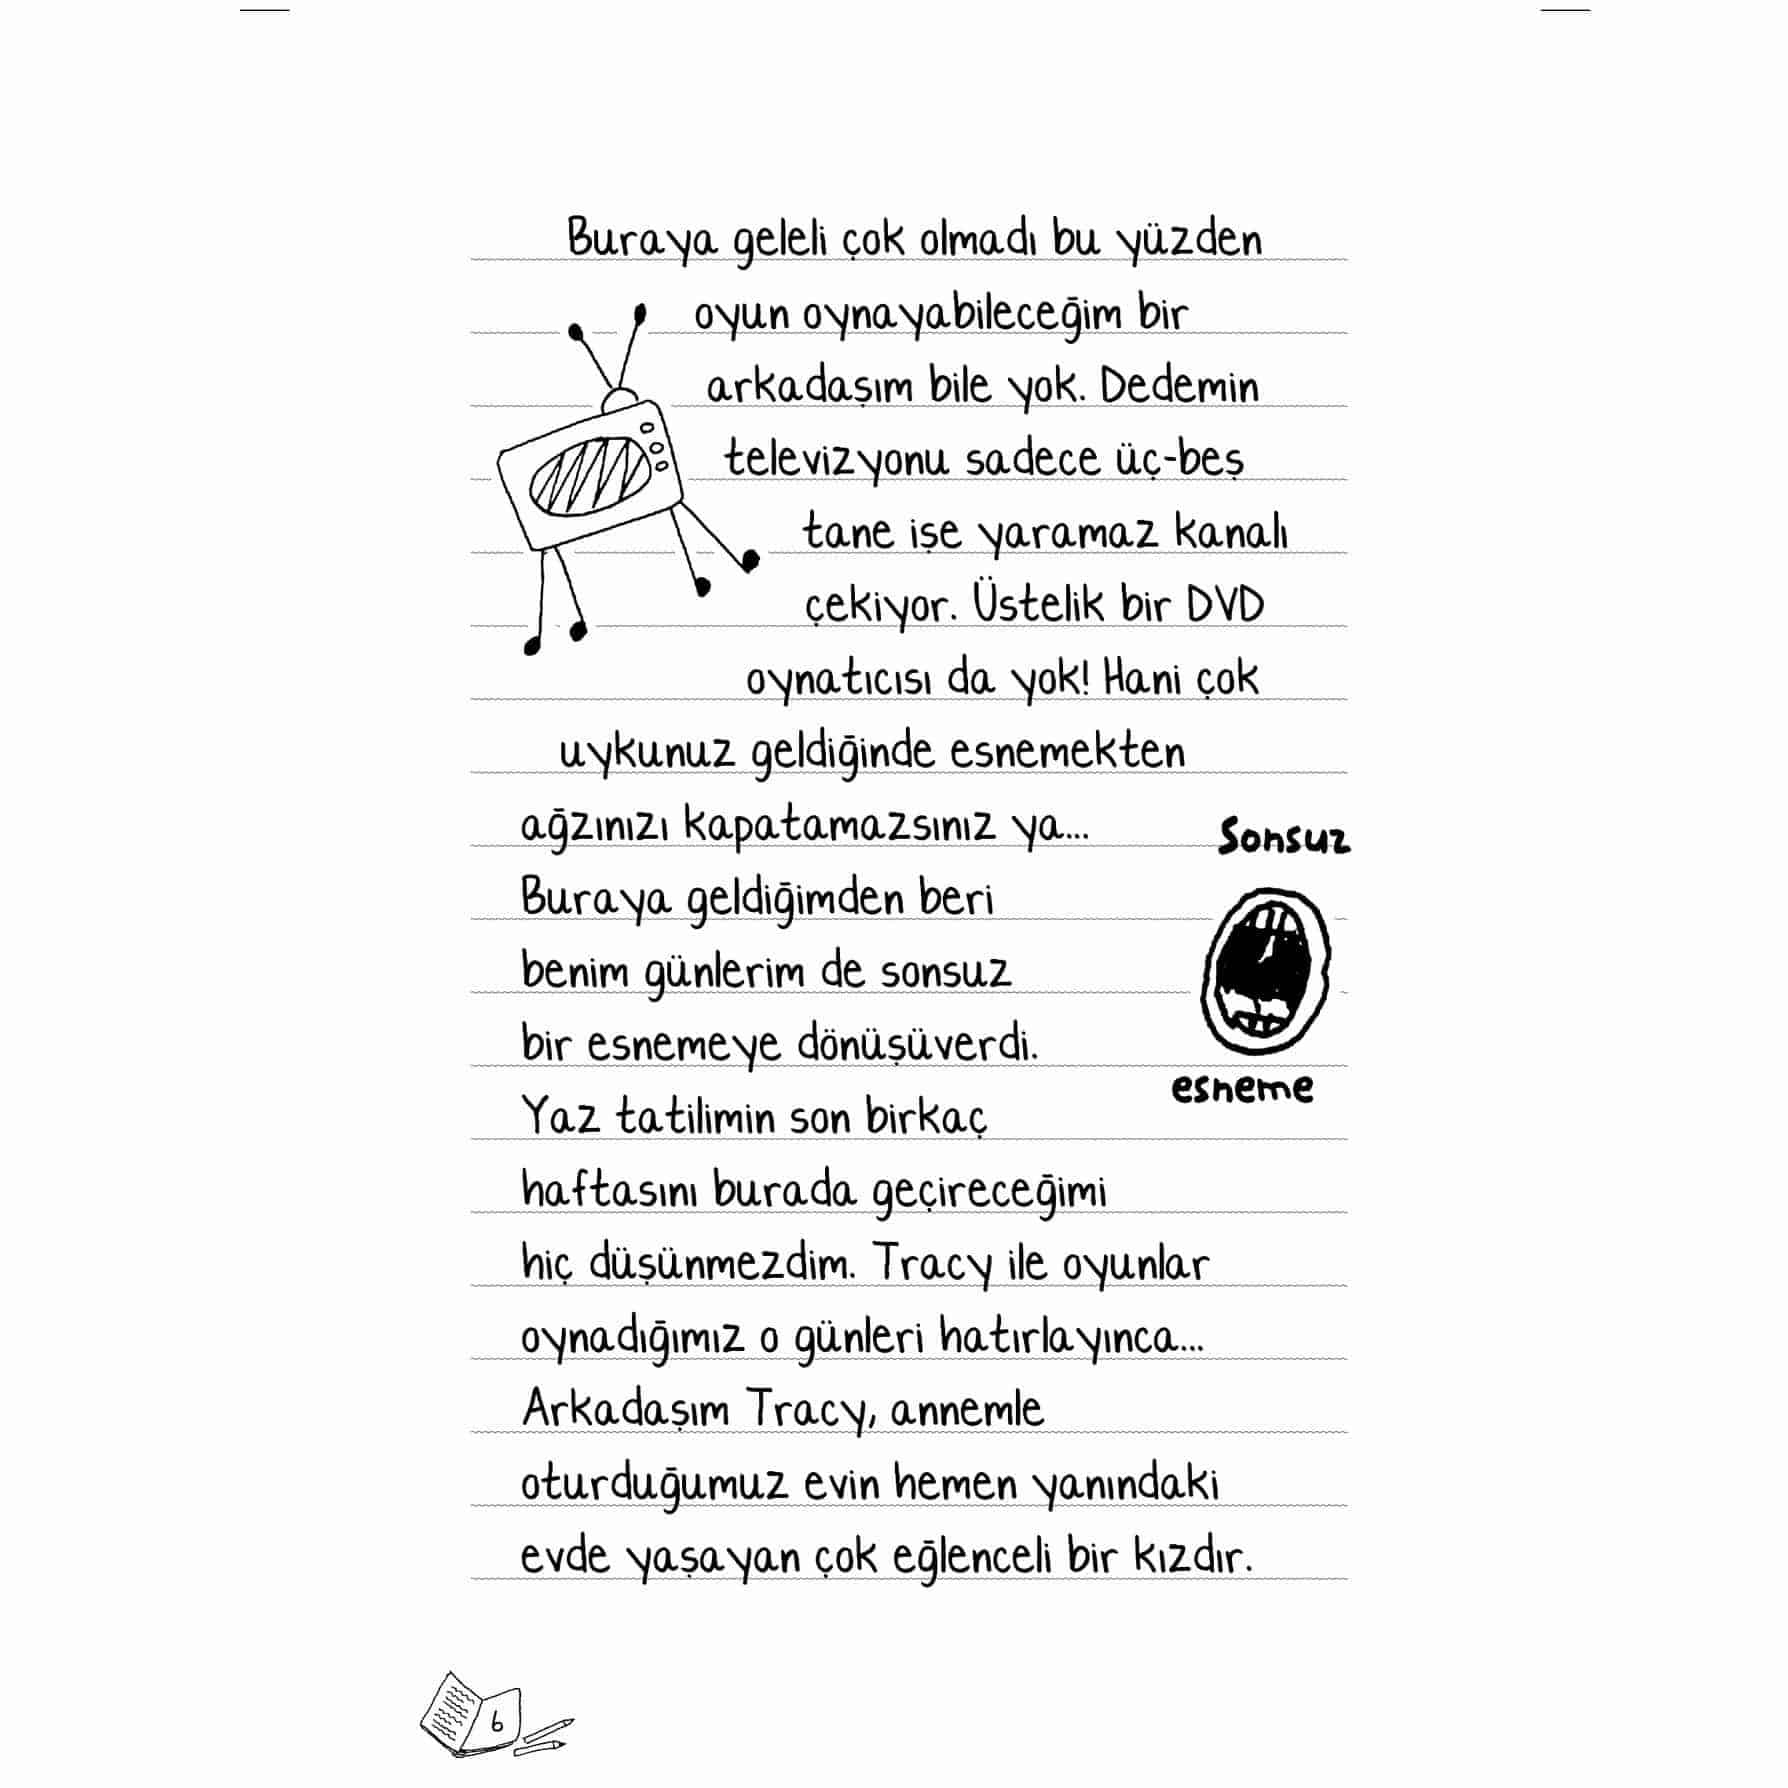 Buraya geleli çok olmadı bu yüzden
oyun oynayabileceğim bir
arkadaşım bile yok. Dedemin
televizyonu sadece üç-beş
tane işe yaramaz kanalı
çekiyor. Üstelik bir DVD
oynatıcısı da yok! Hani çok
uykunuz geldiğinde esnemekten
ağzınızı kapatamazsınız ya...
Buraya geldiğimden beri
benim günlerim de sonsuz
bir esnemeye dönüşüverdi.
Yaz tatilimin son birkaç
haftasını burada geçireceğimi
hiç düşünmezdim. Tracy ile oyunlar
oynadığımız o günleri hatırlayınca...
Arkadaşım Tracy, annemle
oturduğumuz evin hemen yanındaki
evde yaşayan çok eğlenceli bir kızdır.
Sonsuz
esneme
6